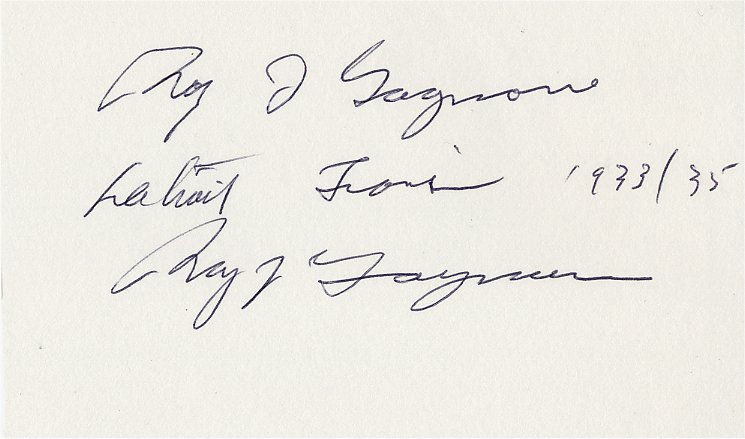 Roy J Gagnon
Detroit Lions 1933/35
Roy J Gagnon